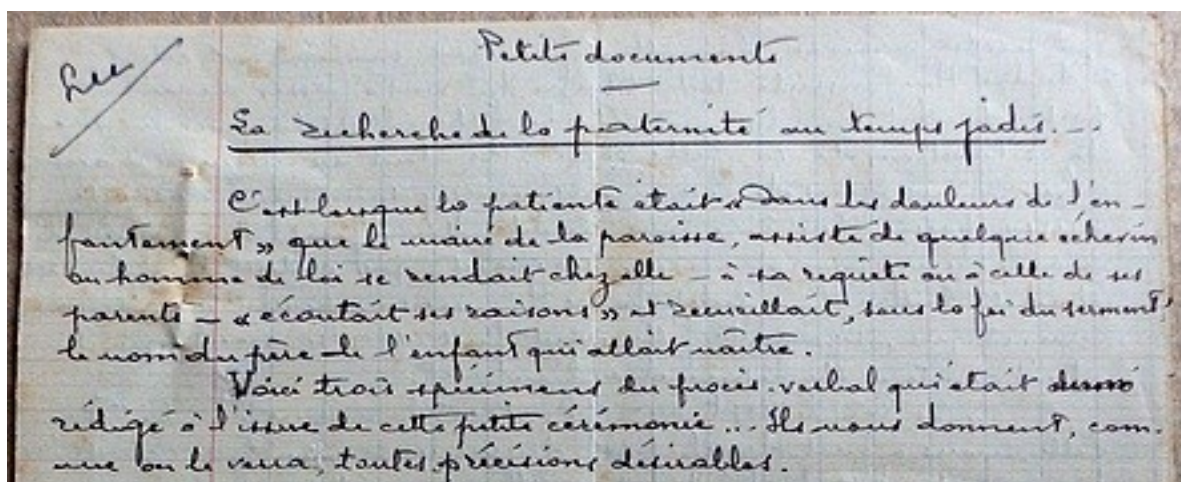 Lu
Petits documents
La recherche de la paternité au temps jadis. –
C'est lorsque la patiente était « dans les douleurs de l'en-
fantement » que le maire de la paroisse, assisté de quelque échevin
ou homme de loi se rendait chez elle – à sa requête ou à celle de ses
parents – « écoutait ses raisons » et recueillait, sous la foi du serment,
le nom du père de l'enfant qui allait naître.
Voici trois spécimens du procès-verbal qui était
rédigé à l'issue de cette petite cérémonie... Ils nous donnent, com-
me on le verra, toutes précisions désirables.